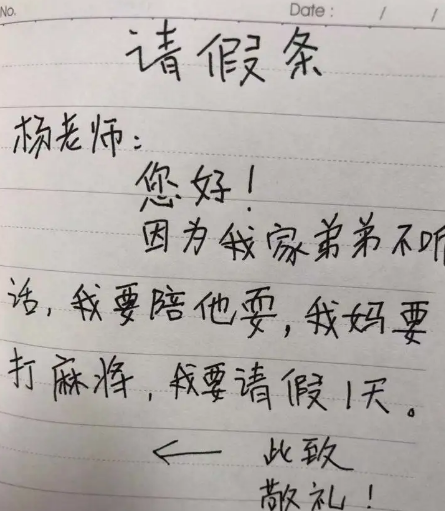 No. Date: / /
请假条
杨老师:
您好!
因为我家弟弟不听
话,我要陪他耍,我妈要
打麻将,我要请假1天。
← 此致
敬礼!